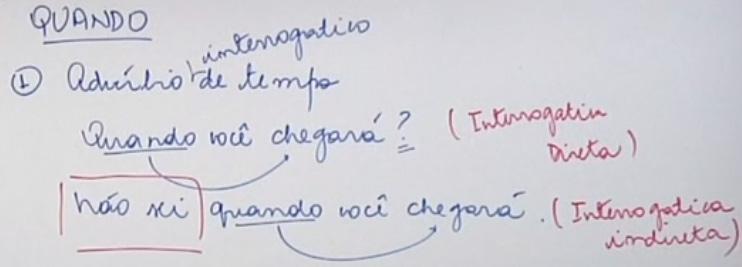 QUANDO
① Advérbio interrogativo de tempo
Quando você chegará? (Interrogativa Direta)
não sei quando você chegará. (Interrogativa indireta)